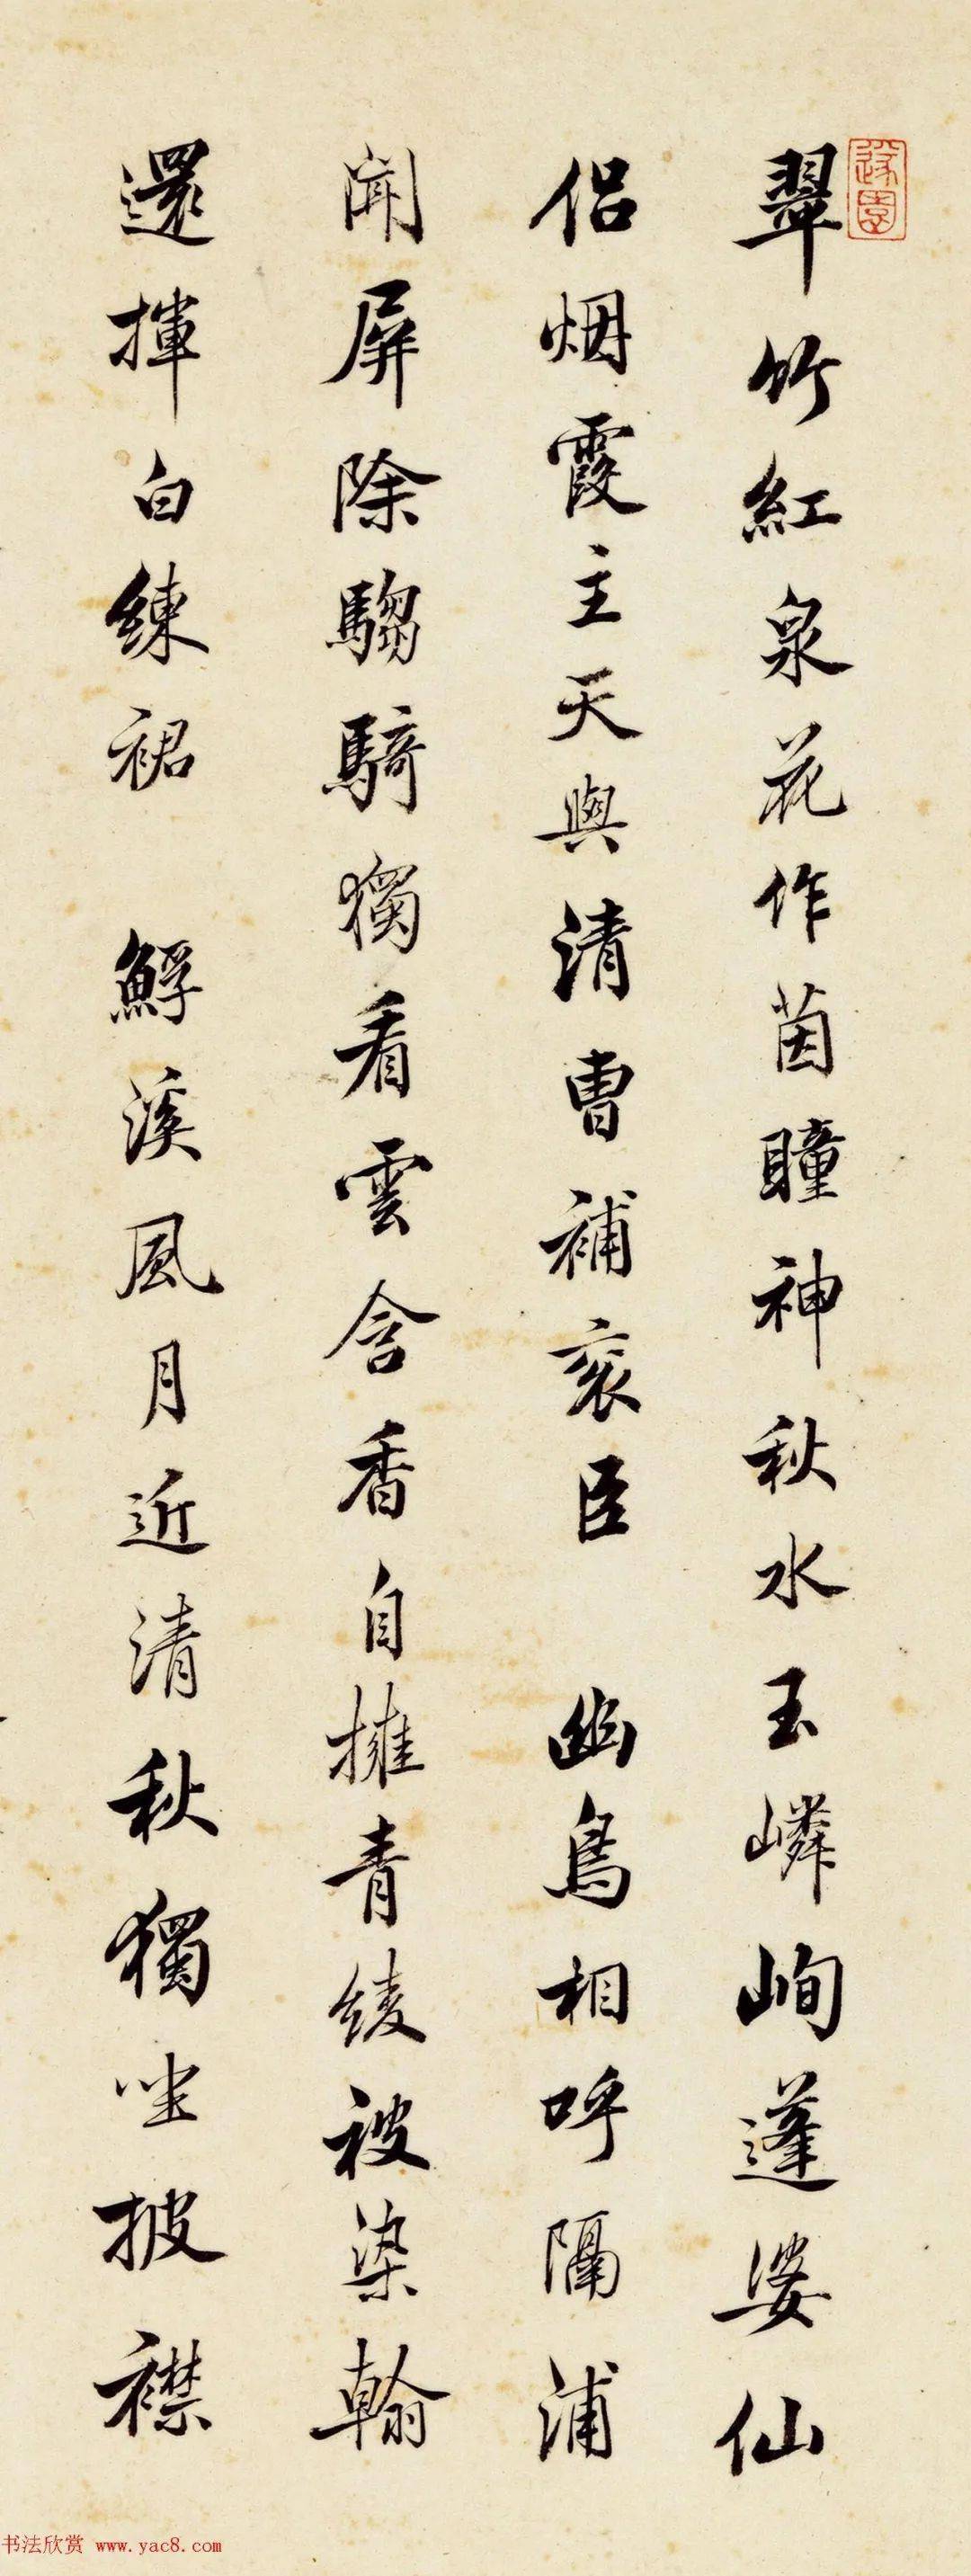 遂園
翠竹紅泉花作茵瞳神秋水玉嶙峋蓬婆仙
侶烟霞主天與清曹補衮臣 幽鳥相呼隔浦
聞屏除騶騎獨看雲含香自擁青綾被染翰
還揮白練裙 鮮溪風月近清秋獨坐披襟
书法欣赏 www.yac8.com